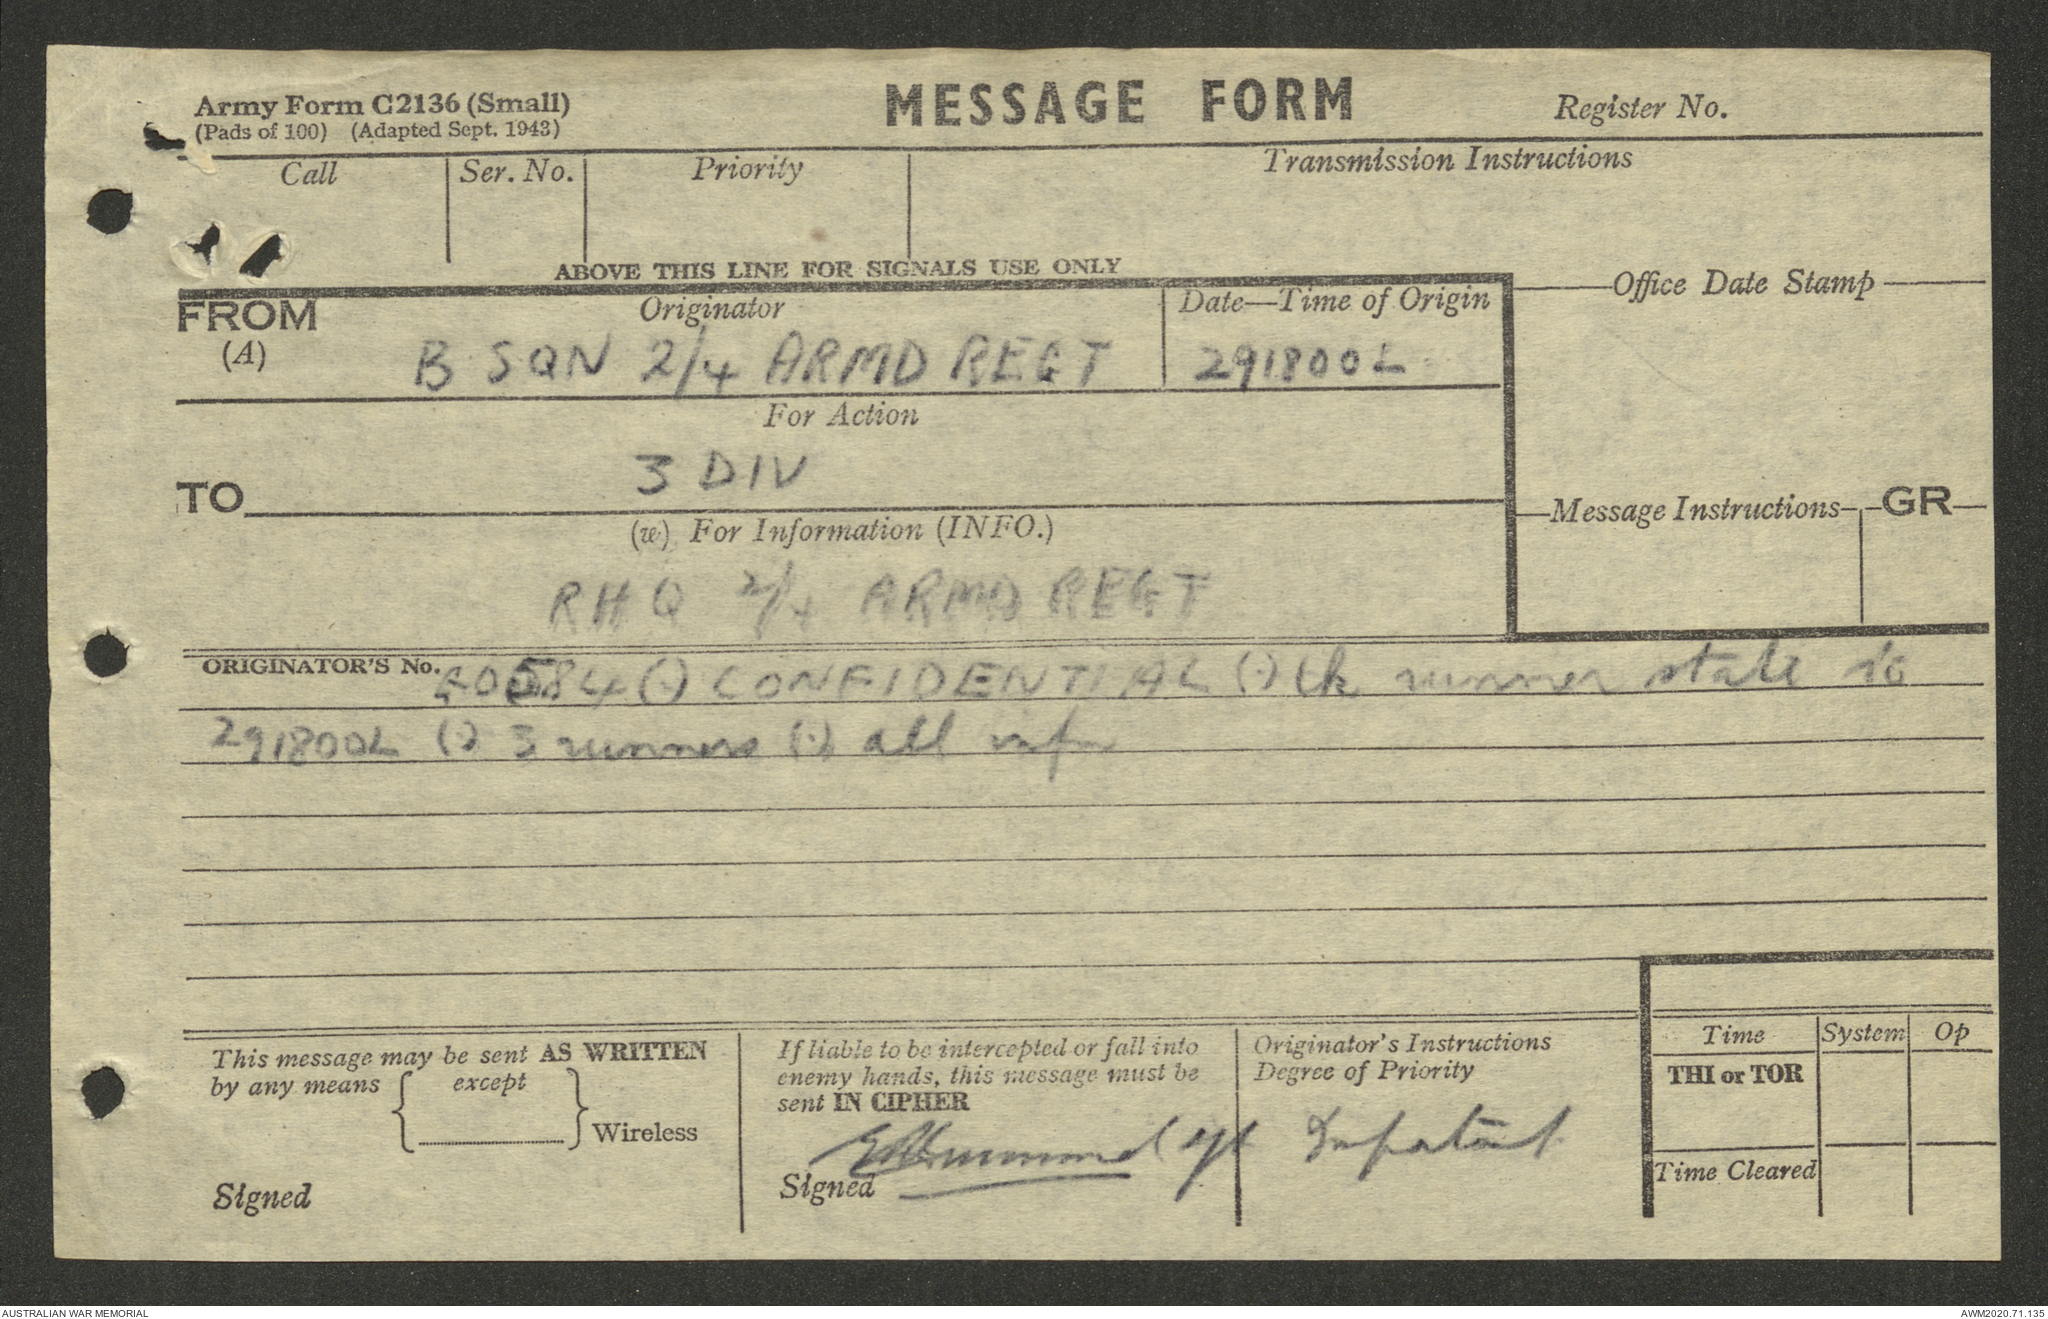 Army Form C2136 (Small)
(Pads of 100) (Adapted Sept. 1943)
MESSAGE FORM
Register No.
Call
Ser. No.
Priority
Transmission Instructions
ABOVE THIS LINE FOR SIGNALS USE ONLY
FROM
(A)
Originator
B SQN 2/4 ARMD REGT
Date—Time of Origin
291800L
Office Date Stamp
For Action
3 DIV
TO
(w) For Information (INFO.)
RHQ 2/4 ARMD REGT
Message Instructions
GR
ORIGINATOR'S No.
(.) CONFIDENTIAL (.) tk runner state to
291800L (.) 3 runners (.) all infm
This message may be sent AS WRITTEN
by any means
except
Wireless
Signed
If liable to be intercepted or fall into
enemy hands, this message must be
sent IN CIPHER
Signed
Originator's Instructions
Degree of Priority
Time
System
Op
THI or TOR
Time Cleared
AUSTRALIAN WAR MEMORIAL
AWM2020.71.135